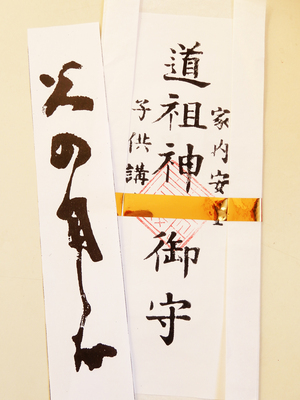 家内安全
道祖神御守
子供講
火の用心